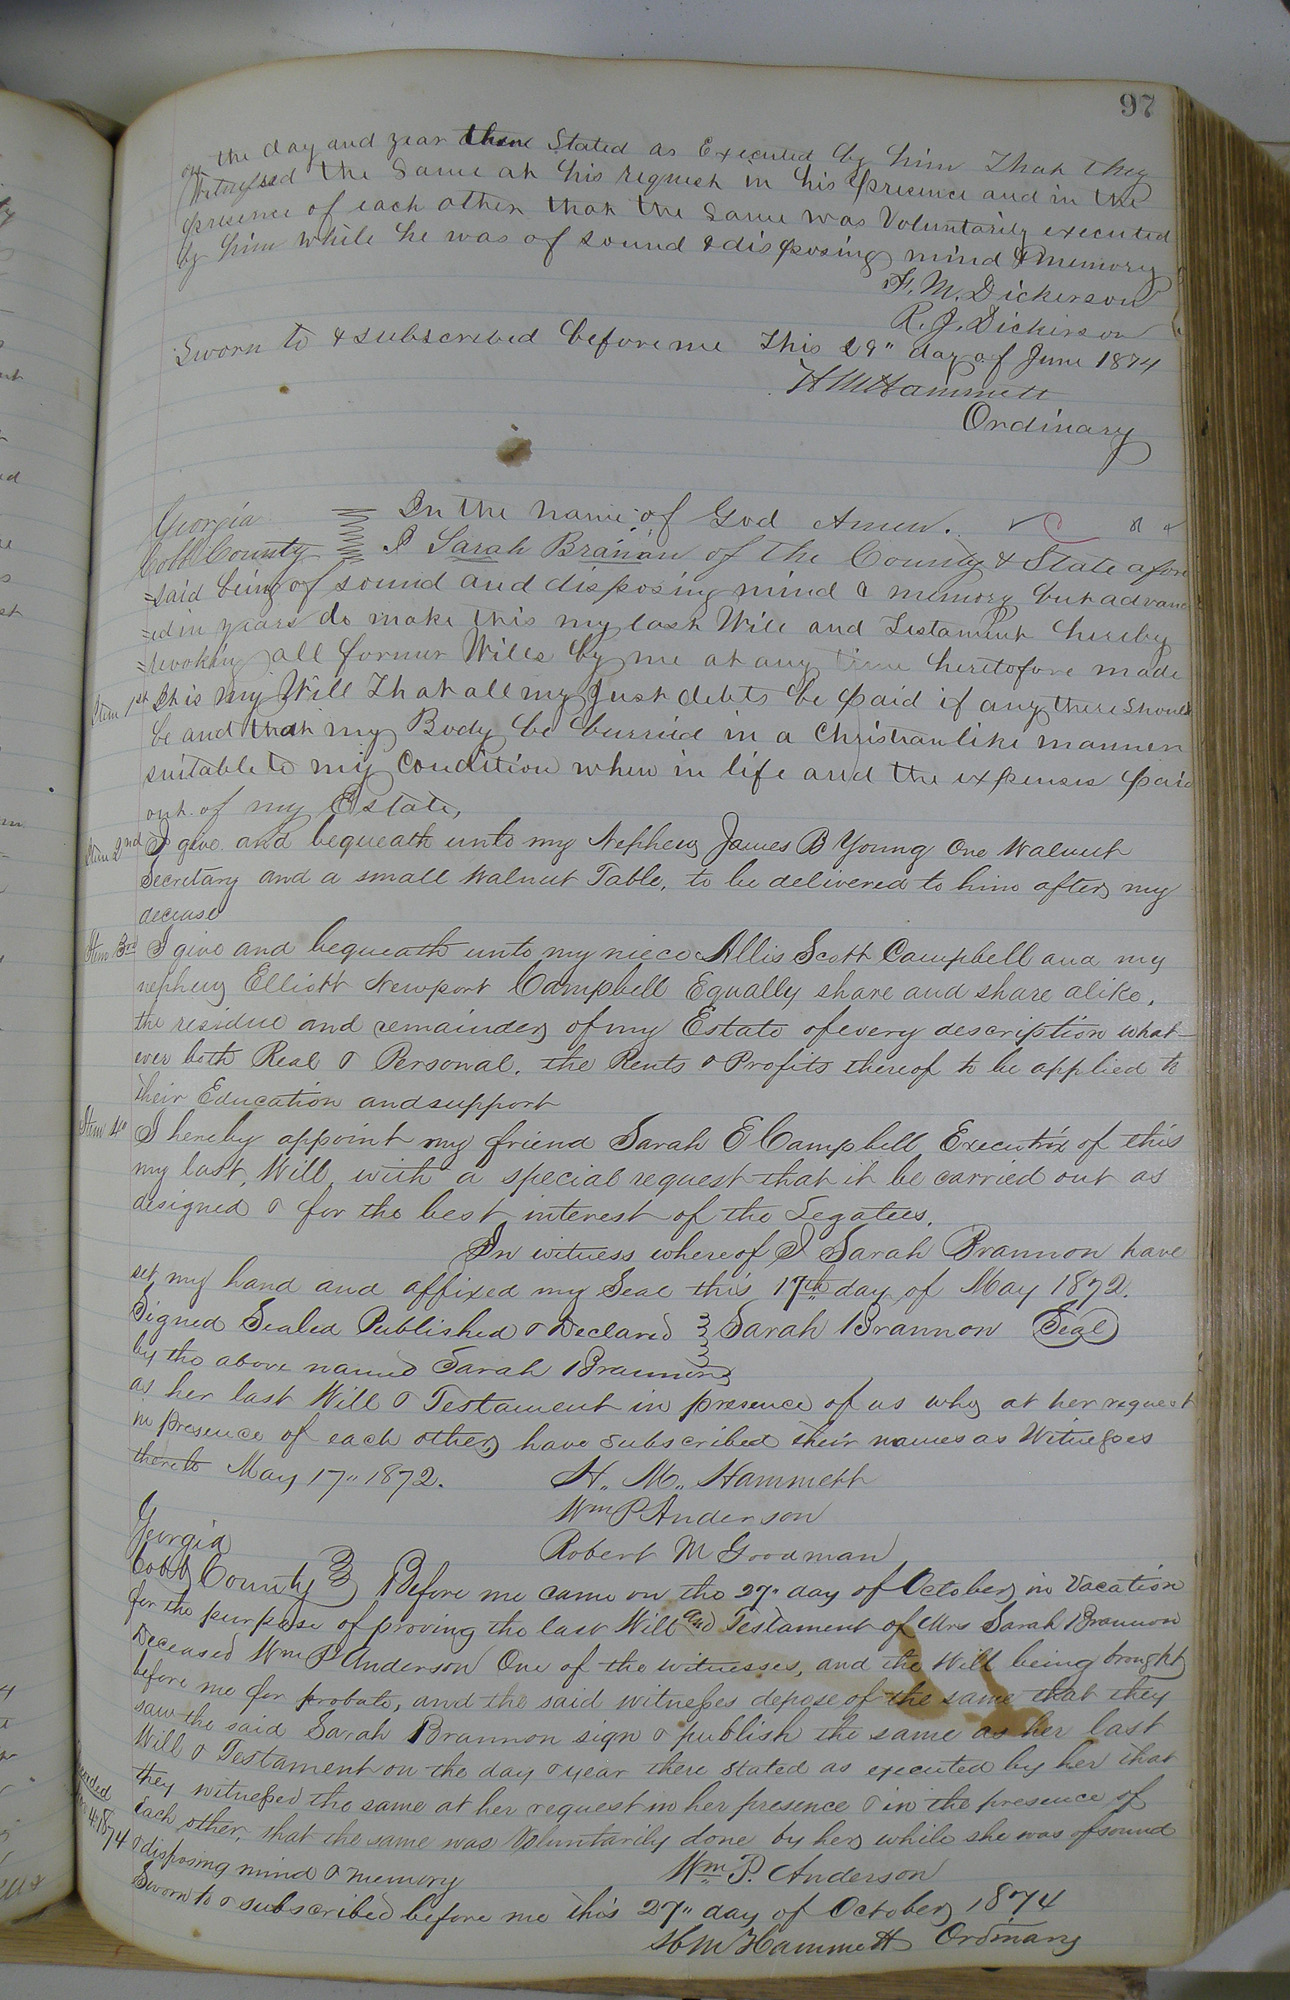 97
on the day and year there Stated as Executed by him That they
Witnessed the Same at his request in his presence and in the
presence of each other that the Same was Voluntarily executed
by him while he was of sound & disposing mind & memory
F. M. Dickerson
R. J. Dickerson
Sworn to & subscribed before me This 29" day of June 1874
H M Hammett
Ordinary
Georgia In the name of God Amen.
Cobb County I Sarah Branan of the County & State afore
=said being of sound and disposing mind & memory but advanc
=ed in years do make this my last Will and Testament hereby
=revoking all former Wills by me at any time heretofore made
Item 1st It is my Will That all my Just debts be paid if any there should
be and that my Body be burried in a Christian like manner
suitable to my Condition when in life and the expenses paid
out of my Estate,
Item 2nd I give and bequeath unto my Nephew James B Young One Walnut
Secretary and a small Walnut Table, to be delivered to him after my
decease
Item 3rd I give and bequeath unto my niece Allis Scott Campbell and my
nephew Elliott Newport Campbell Equally share and share alike,
the residue and remainder of my Estate of every description what-
ever both Real & Personal, the Rents & Profits thereof to be applied to
their Education and support
Item 4" I hereby appoint my friend Sarah E Campbell Executrix of this
my last, Will, with a special request that it be carried out as
designed & for the best interest of the Legatees.
In witness whereof I Sarah Brannon have
set my hand and affixed my Seal this 17th day of May 1872.
Signed Sealed Published & Declared Sarah Brannon Seal
by the above named Sarah Brannon
as her last Will & Testament in presence of us who at her request
in presence of each other have subscribed their names as Witnesses
thereto May 17" 1872. H. M. Hammett
Wm P Anderson
Robert M Goodman
Georgia
Cobb County Before me came on the 27" day of October in Vacation
for the purpose of proving the last Will and Testament of Mrs Sarah Brannon
Deceased Wm P Anderson One of the witnesses, and the Will being brought
before me for probate, and the said witnesses depose of the same that they
saw the said Sarah Brannon sign & publish the same as her last
Will & Testament on the day & year there stated as executed by her that
they witnessed the same at her request in her presence & in the presence of
each other, that the same was Voluntarily done by her while she was of sound
& disposing mind & memory Wm P. Anderson
Sworn to & subscribed before me this 27" day of October 1874
H M Hammett Ordinary
4. 1874